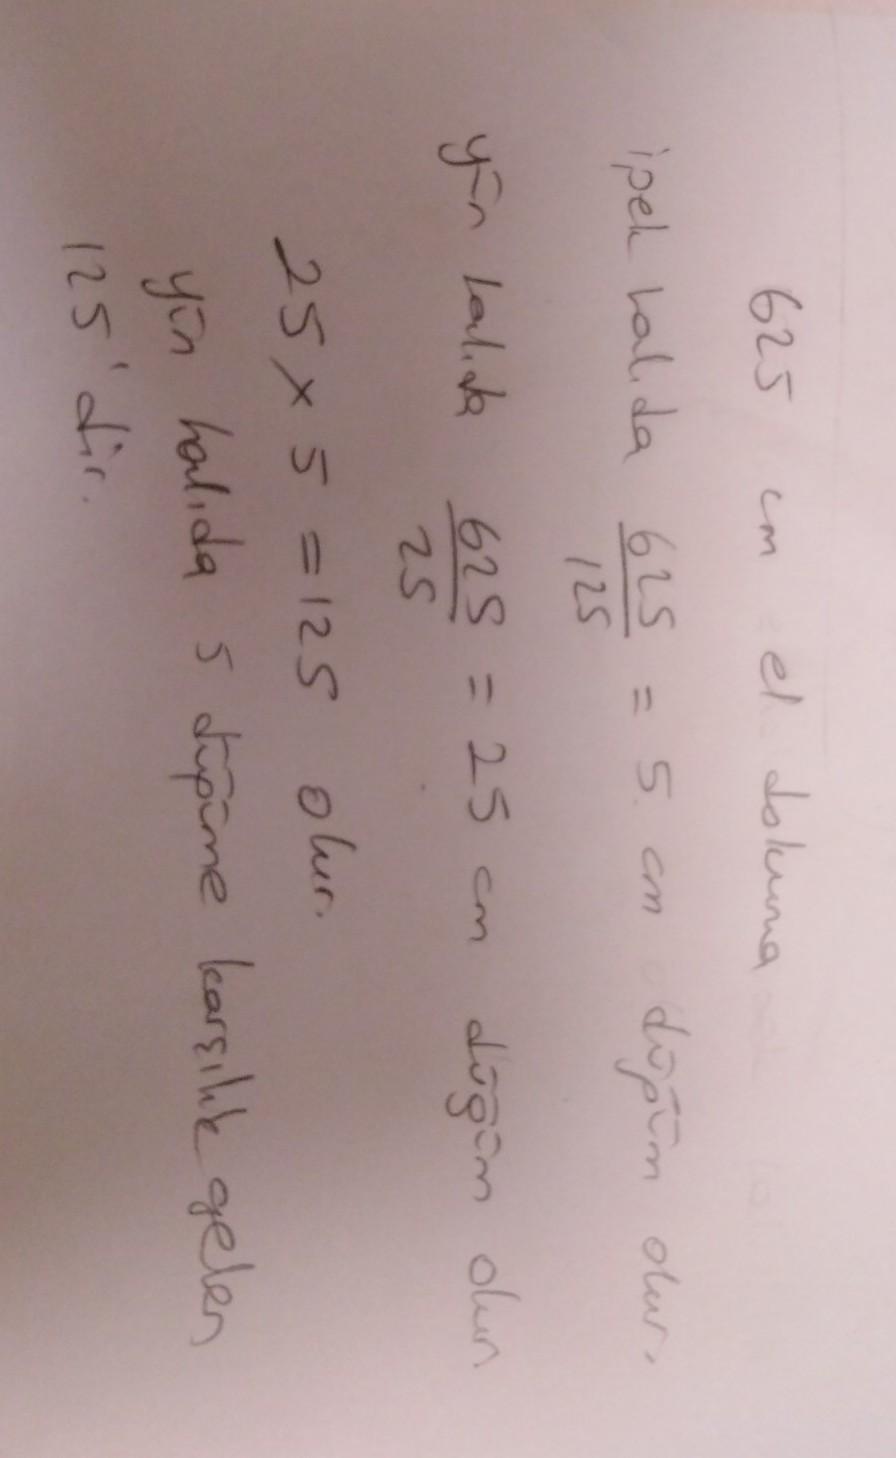 625 cm el dokuma
ipek halıda 625/125 = 5 cm düğüm olur.
yün halıda 625/25 = 25 cm düğüm olur
25 x 5 = 125 olur.
yün halıda 5 düğüme karşılık gelen
125'dir.